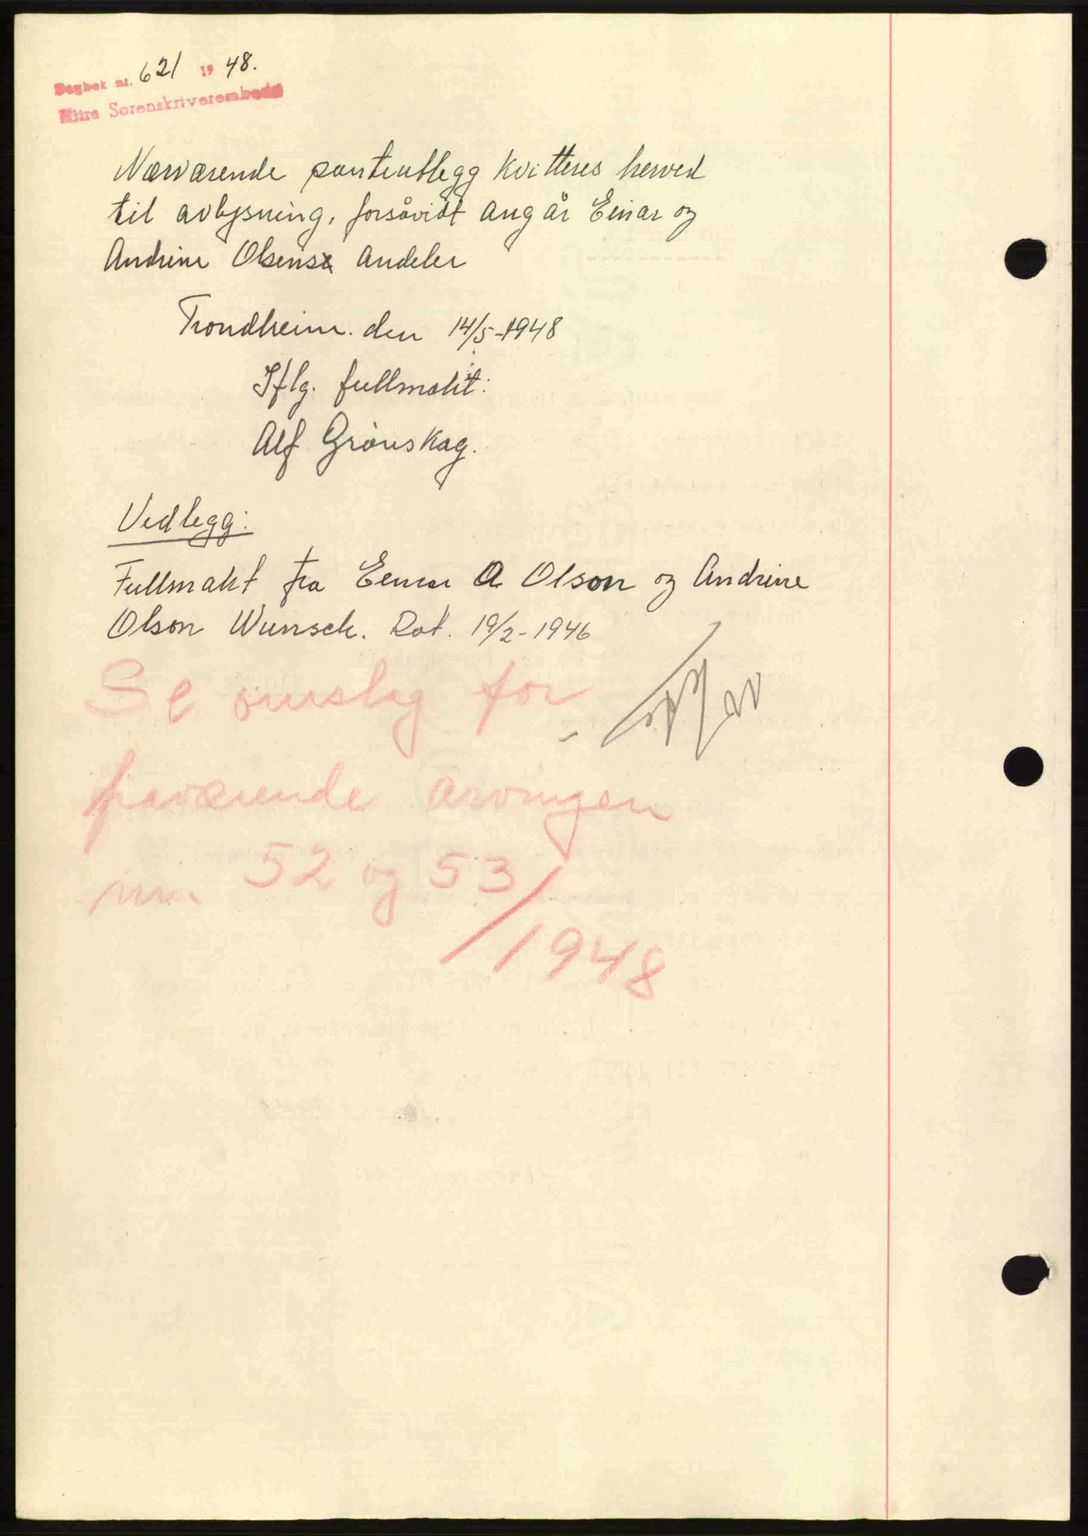 Dagbok nr. 621 19 48.
Hitra Sorenskriverembede
Nærværende panteutlegg kvitteres herved
til avlysning, forsåvidt angår Einar og
Andrine Olsens andeler
Trondheim. den 14/5-1948
Iflg. fullmakt:
Alf Grønskag.
Vedlegg:
Fullmakt fra Einar A Olson og Andrine
Olson Wunsch. Dat. 19/2-1946
Se omslag for
fraværende arvingen
nr. 52 og 53/1948